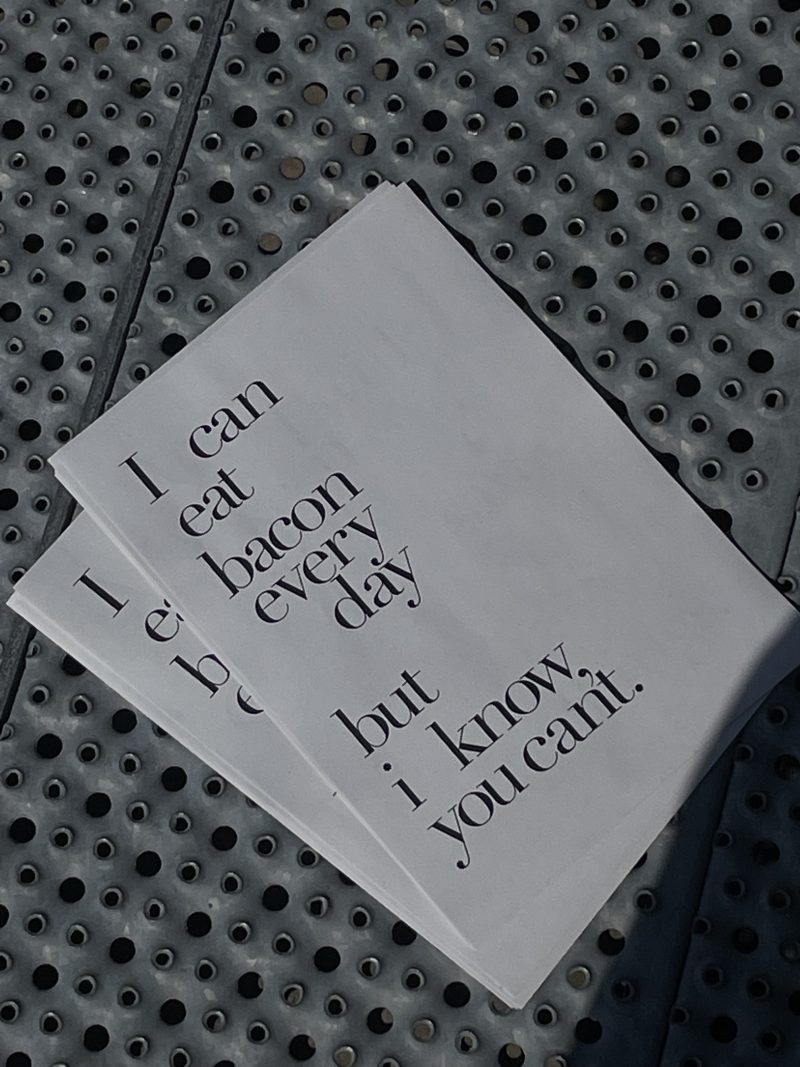 I can
eat
bacon
every
day
but
i know,
you can't.
I